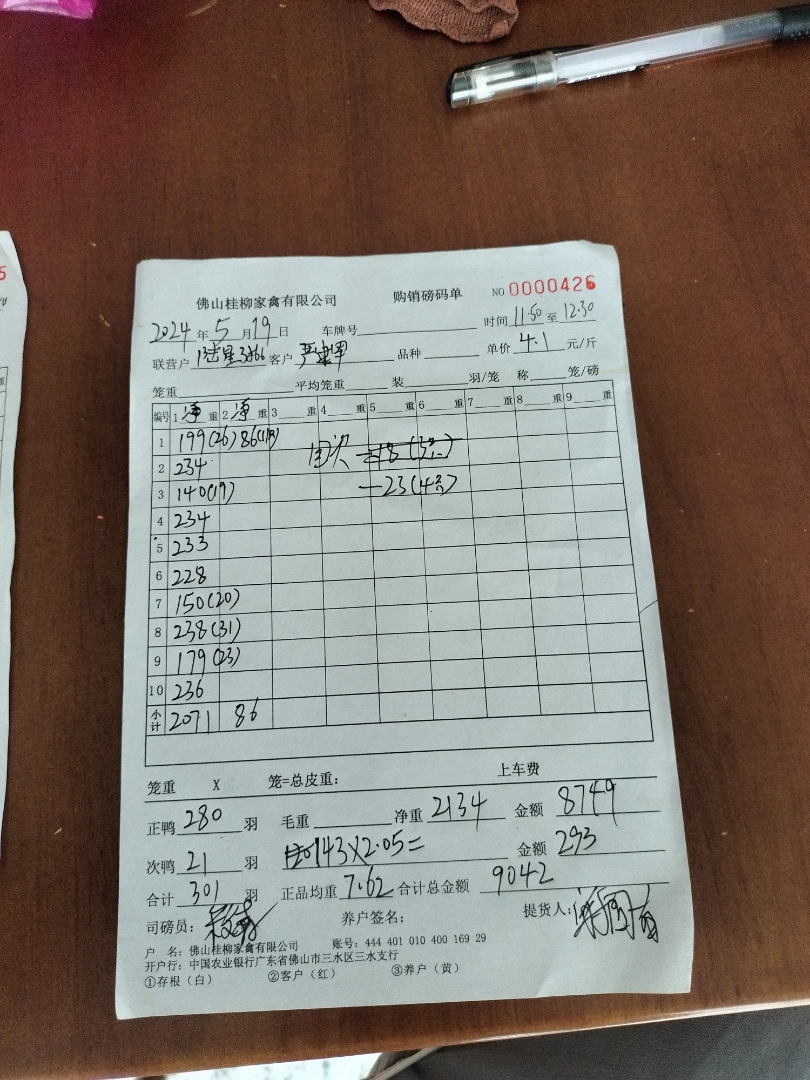 佛山桂柳家禽有限公司 购销磅码单 NO 0000426
2024 年 5 月 19 日 车牌号 时间 11:50 至 12:30
联营户 客户 品种 单价 4.1 元/斤
笼重 平均笼重 装 羽/笼 称 笼/磅
编号 1 净 重 2 净 重 3 重 4 重 5 重 6 重 7 重 8 重 9 重
1 199(26) 86
2 234
3 140(19) -23(4只)
4 234
5 233
6 228
7 150(20)
8 238(31)
9 179(23)
10 236
小计 2071 86
笼重 X 笼=总皮重: 上车费
正鸭 280 羽 毛重 净重 2134 金额 8749
次鸭 21 羽 143X2.05= 金额 293
合计 301 羽 正品均重 7.62 合计总金额 9042
司磅员: 养户签名: 提货人:
户 名: 佛山桂柳家禽有限公司 账号: 444 401 010 400 169 29
开户行: 中国农业银行广东省佛山市三水区三水支行
①存根(白) ②客户(红) ③养户(黄)